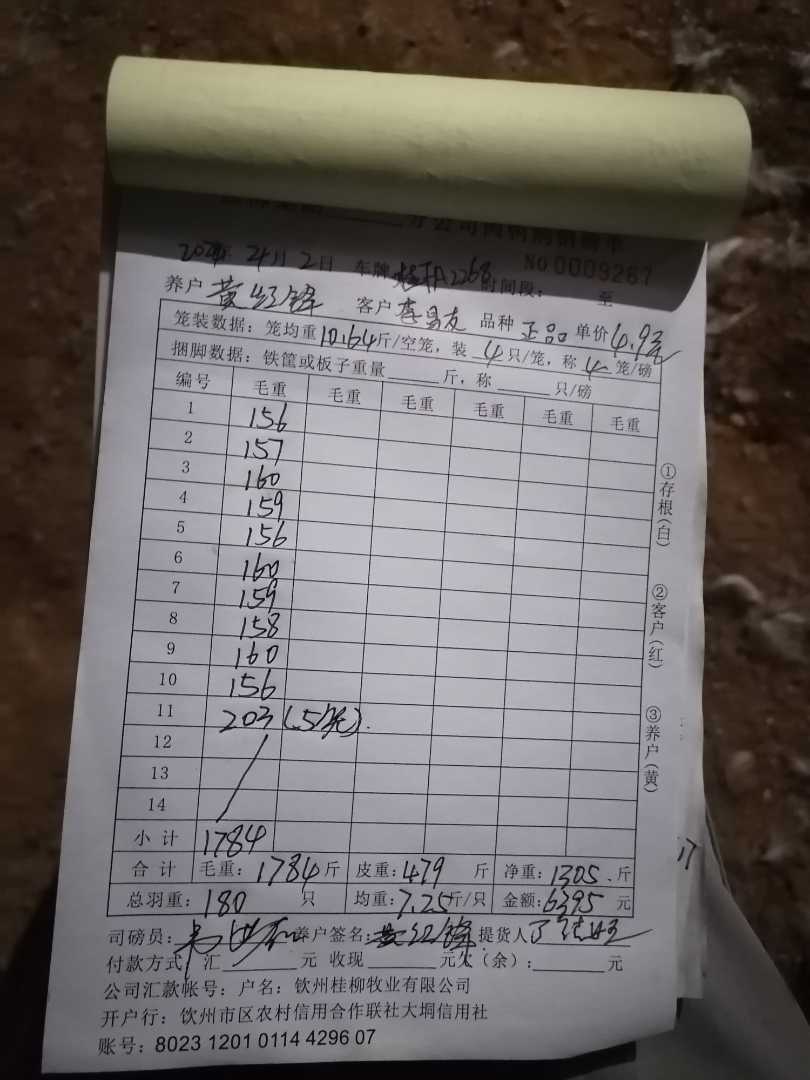 分公司肉鸭销售单
2024年 4月 2日 车牌 桂A2268 时间段: 至 No 0009267
养户 黄红锋 客户 李昌友 品种 正品 单价 4.9元
笼装数据: 笼均重10.64斤/空笼, 装 4 只/笼, 称 4 笼/磅
捆脚数据: 铁筐或板子重量____斤, 称____只/磅
编号 毛重 毛重 毛重 毛重 毛重 毛重
1 156
2 157
3 160
4 159
5 156
6 160
7 159
8 158
9 160
10 156
11 203 (.5笼).
12
13
14
小计 1784
合计 毛重: 1784 斤 皮重: 479 斤 净重: 1305 斤
总羽重: 180 只 均重: 7.25斤/只 金额: 6395 元
①存根(白)
②客户(红)
③养户(黄)
司磅员: 养户签名: 黄红锋 提货人
付款方式 汇____元 收现____元欠(余): ____元
公司汇款帐号: 户名: 钦州桂柳牧业有限公司
开户行: 钦州市区农村信用合作联社大垌信用社
账号: 8023 1201 0114 4296 07